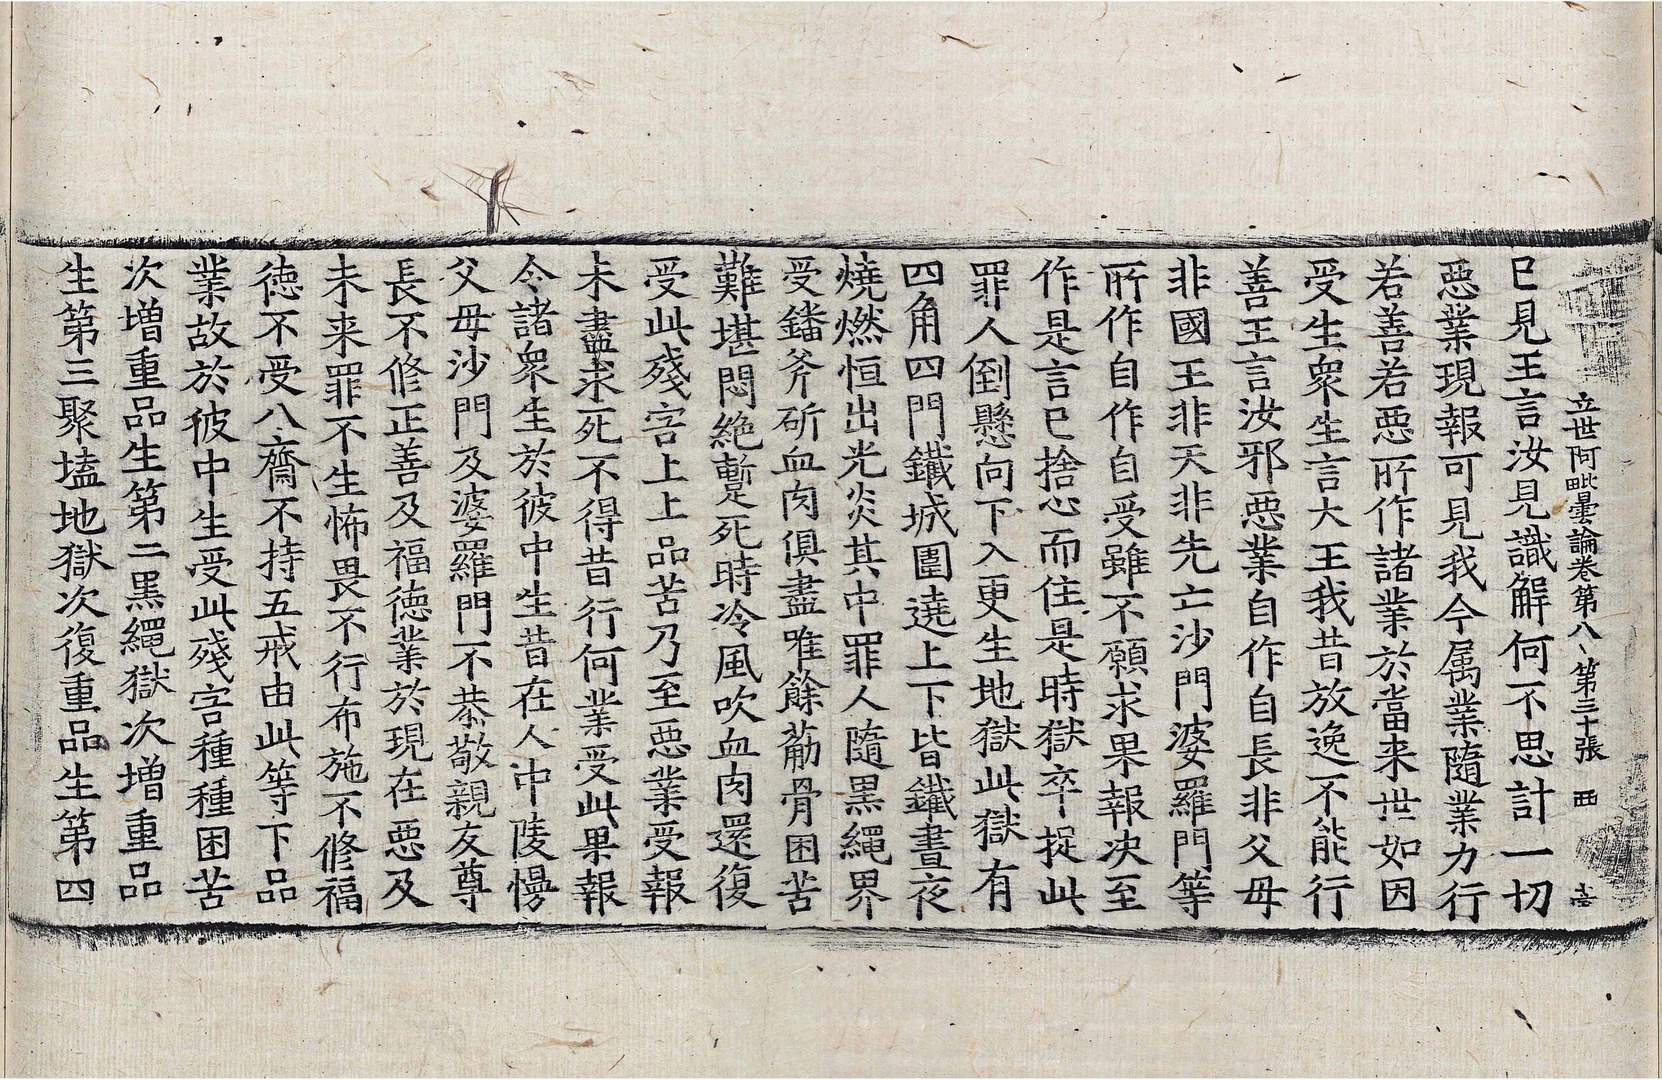 立世阿毗曇論卷第八 第三十張 西
已見王言汝見識解何不思計一切
惡業現報可見我今属業隨業力行
若善若惡所作諸業於當来世如因
受生衆生言大王我昔放逸不能行
善王言汝邪惡業自作自長非父母
非國王非天非先亡沙門婆羅門等
所作自作自受雖不願求果報決至
作是言已捨心而住是時獄卒捉此
罪人倒懸向下入更生地獄此獄有
四角四門鐵城圍遶上下皆鐵晝夜
燒燃恒出光炎其中罪人隨黒繩界
受鐇斧斫血肉俱盡唯餘筋骨困苦
難堪悶絶蹔死時冷風吹血肉還復
受此殘害上上品苦乃至惡業受報
未盡求死不得昔行何業受此果報
令諸衆生於彼中生昔在人中陵慢
父母沙門及婆羅門不恭敬親友尊
長不修正善及福徳業於現在惡及
未来罪不生怖畏不行布施不修福
徳不受八齋不持五戒由此等下品
業故於彼中生受此殘害種種困苦
次增重品生第二黒繩獄次增重品
生第三聚磕地獄次復重品生第四